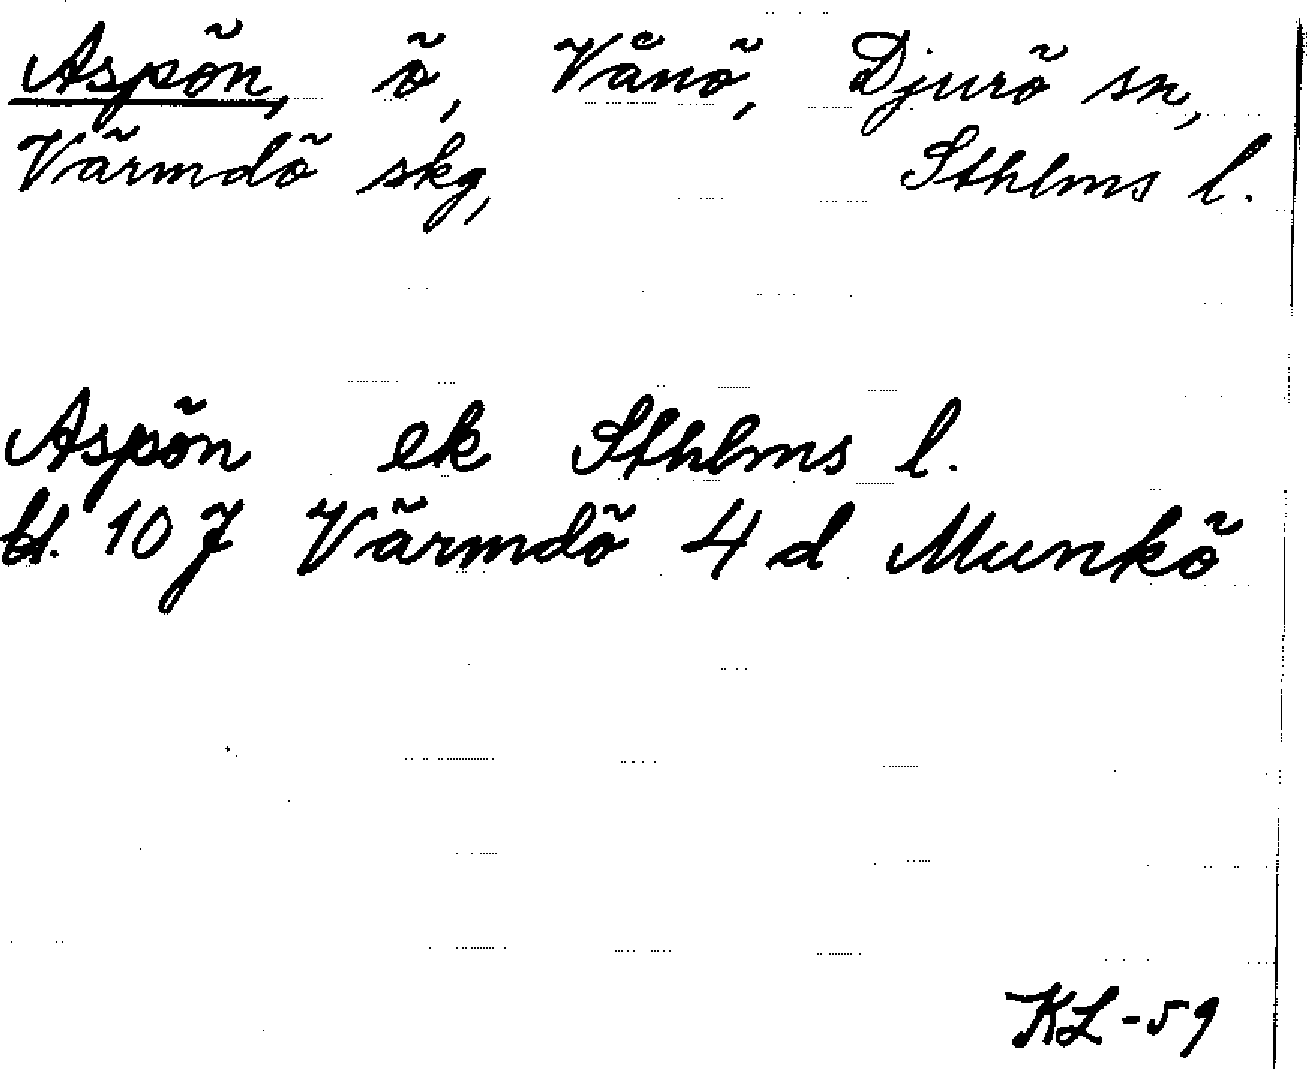 Aspön, ö, Vånö, Djurö sn,
Värmdö skg, Sthlms l.
Aspön ek Sthlms l.
bl. 107 Värmdö 4 d Munkö
KL-59